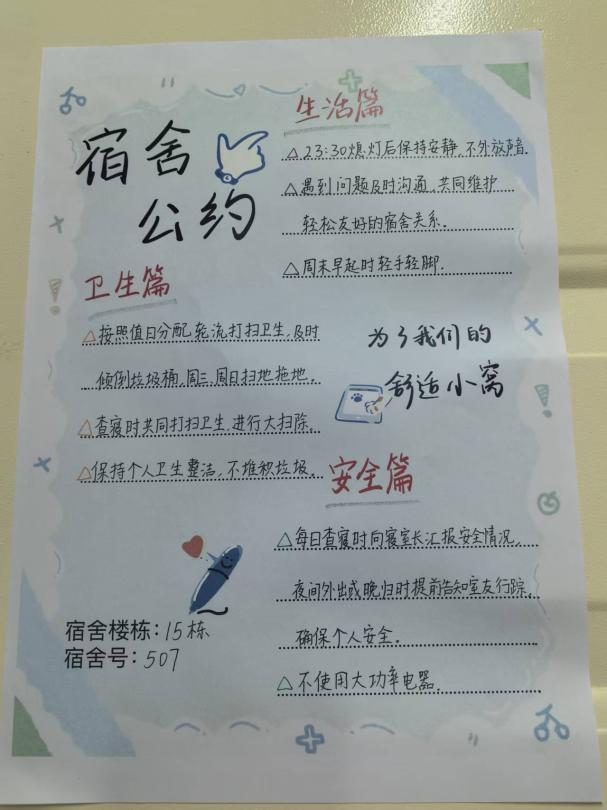 宿舍
公约
生活篇
△23:30熄灯后保持安静,不外放声音.
△遇到问题及时沟通,共同维护
轻松友好的宿舍关系.
△周末早起时轻手轻脚.
卫生篇
△按照值日分配,轮流打扫卫生,及时
倾倒垃圾桶,周三、周日扫地拖地.
△查寝时共同打扫卫生,进行大扫除.
△保持个人卫生整洁,不堆积垃圾.
为了我们的
舒适小窝
安全篇
△每日查寝时向寝室长汇报安全情况,
夜间外出或晚归时提前告知室友行踪,
确保个人安全.
△不使用大功率电器.
宿舍楼栋:15栋
宿舍号:507